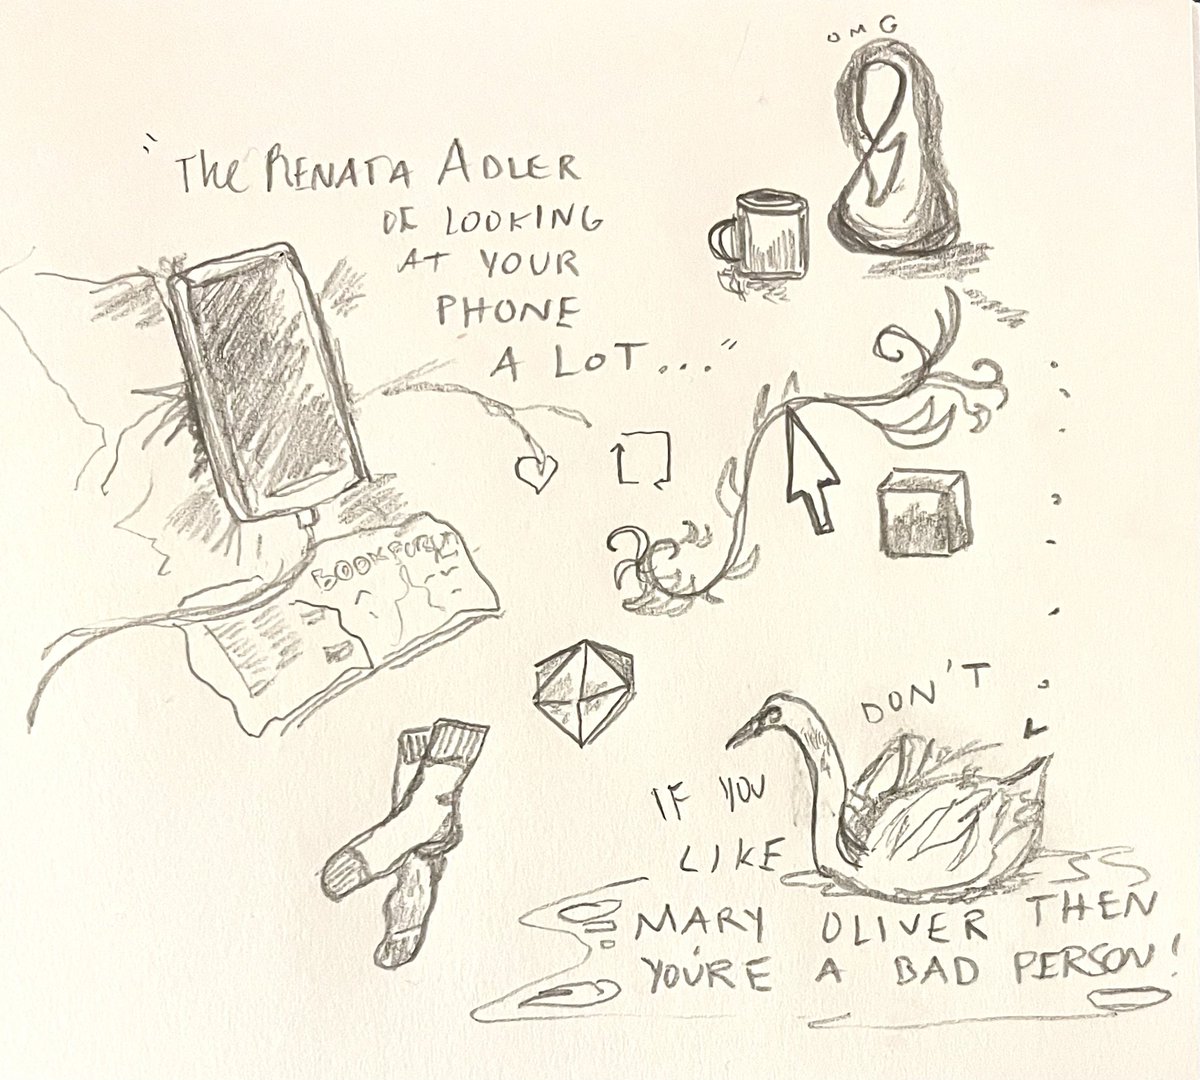 OMG
"The RENATA ADLER
OF LOOKING
AT YOUR
PHONE
A LOT..."
BOOKFORUM
DON'T
IF YOU
LIKE
MARY OLIVER THEN
YOU'RE A BAD PERSON!